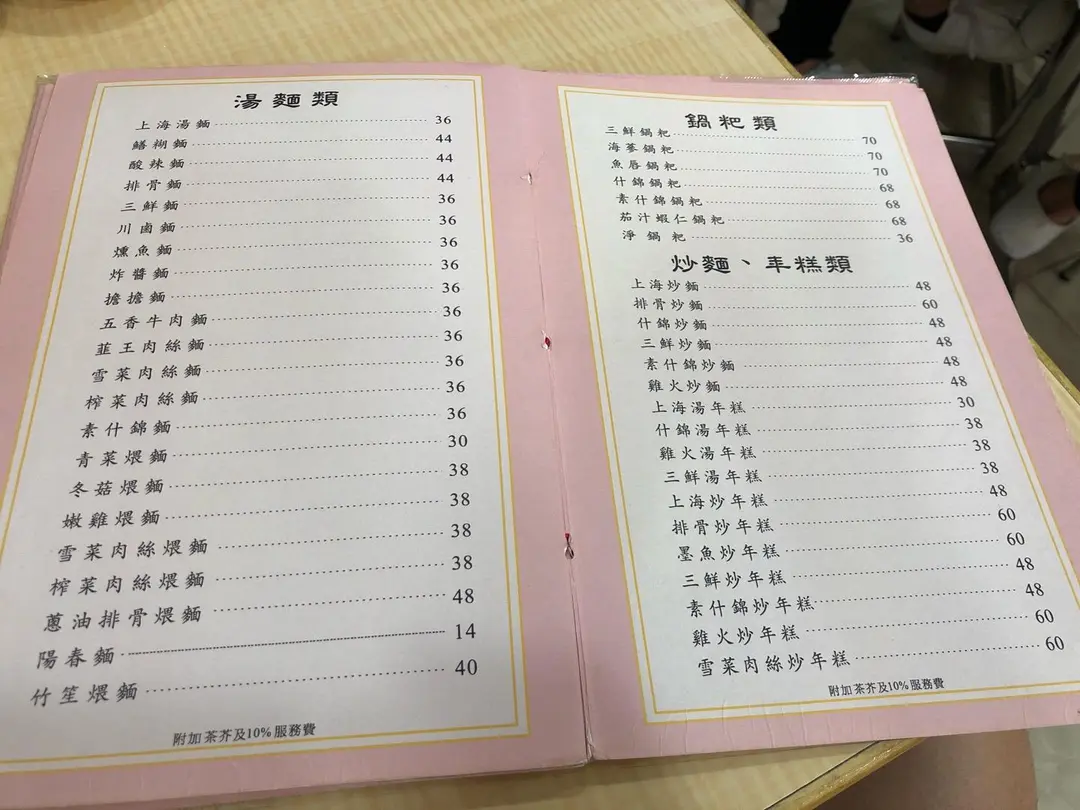 湯麵類
上海湯麵 36
鱔糊麵 44
酸辣麵 44
排骨麵 44
三鮮麵 36
川鹵麵 36
燻魚麵 36
炸醬麵 36
擔擔麵 36
五香牛肉麵 36
韮王肉絲麵 36
雪菜肉絲麵 36
榨菜肉絲麵 36
素什錦麵 36
青菜煨麵 30
冬菇煨麵 38
嫩雞煨麵 38
雪菜肉絲煨麵 38
榨菜肉絲煨麵 38
蔥油排骨煨麵 48
陽春麵 14
竹笙煨麵 40
附加茶芥及10%服務費
鍋粑類
三鮮鍋粑 70
海蔘鍋粑 70
魚唇鍋粑 70
什錦鍋粑 68
素什錦鍋粑 68
茄汁蝦仁鍋粑 68
淨鍋粑 36
炒麵、年糕類
上海炒麵 48
排骨炒麵 60
什錦炒麵 48
三鮮炒麵 48
素什錦炒麵 48
雞火炒麵 48
上海湯年糕 30
什錦湯年糕 38
雞火湯年糕 38
三鮮湯年糕 38
上海炒年糕 48
排骨炒年糕 60
墨魚炒年糕 60
三鮮炒年糕 48
素什錦炒年糕 48
雞火炒年糕 60
雪菜肉絲炒年糕 60
附加茶芥及10%服務費